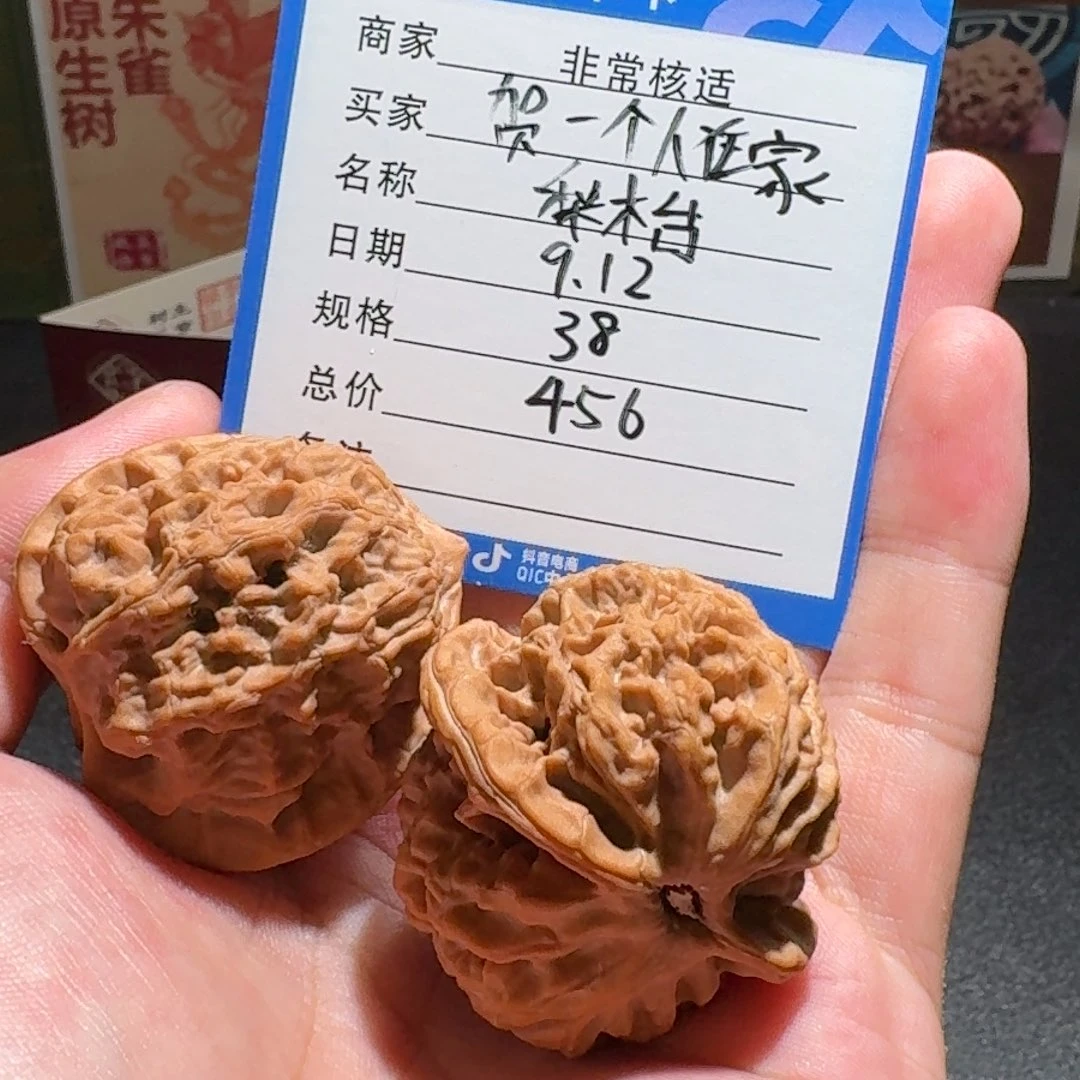 朱雀
原生树
商家 非常核适
买家 贺一个人逛家
名称
日期 9.12
规格 38
总价 456
抖音电商
QIC中